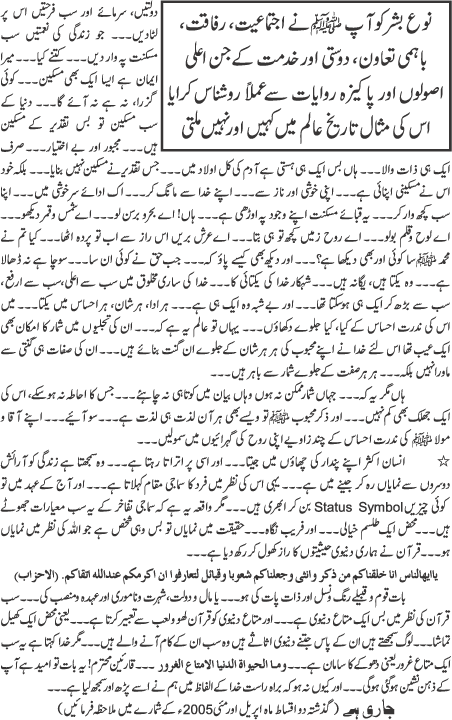 نوع بشر کو آپ ﷺ نے اجتماعیت، رفاقت،
باہمی تعاون، دوستی اور خدمت کے جن اعلی
اصولوں اور پاکیزہ روایات سے عملاً روشناس کرایا
اس کی مثال تاریخ عالم میں کہیں اور نہیں ملتی
دولتیں، سرمائے اور سب فرحتیں اس پر
لٹا دیں۔۔۔ جو زندگی کی نعمتیں سب
مسکنت پہ وار دیں۔۔۔ کتنے کیا۔۔۔ میرا
ایمان ہے ایسا ایک بھی مسکین۔۔۔ کوئی
گزرا، نہ ہے نہ آئے گا۔۔۔ دنیا کے
سب مسکین تو بس تقدیر کے مسکین
ہیں۔۔۔ مجبور اور بے اختیار۔۔۔ صرف
ایک ہی ذات والا۔۔۔ ہاں بس ایک ہی ہستی ہے آدم کی کل اولاد میں۔۔۔ جس تقدیر نے مسکین نہیں بنایا۔۔۔ بلکہ خود
اس نے مسکینی اپنائی ہے۔۔۔ اپنی خوشی اور ناز سے۔۔۔ اپنے خدا سے مانگ کر۔۔۔ اک ادائے سرخوشی میں۔۔۔
سب کچھ وار کر۔۔۔ یہ قبائے مسکنت اپنے وجود پہ اوڑھی ہے۔۔۔ ہاں! اے بحر و بر سن لو۔۔۔ اے شمس و قمر دیکھو۔۔۔
اے لوح و قلم بولو۔۔۔ اے روح زمیں کچھ تو ہی بتا۔۔۔ اے عرش بریں اس راز سے اب تو پردہ اٹھا۔۔۔ کیا تم نے
محمد ﷺ سا کوئی اور بھی دیکھا ہے؟۔۔۔ اور دیکھو بھی کیسے پاؤ کہ۔۔۔ جب حق نے کوئی ان سا۔۔۔ سوچا ہے نہ ڈھالا
ہے۔۔۔ وہ یکتا ہیں، یگانہ ہیں۔۔۔ شہکار خدا کی یکتائی کا۔۔۔ خدا کی ساری مخلوق میں سب سے اعلی، سب سے ارفع،
سب سے بڑھ کر ایک ہی ہو سکتا تھا۔۔۔ اور بے شبہ وہ ایک ہی ہے۔۔۔ ہر ادا، ہر شان، ہر احساس میں یکتا۔۔۔ میں
اس کی ندرت احساس کے کیا، کیا جلوے دکھاؤں۔۔۔ یہاں تو عالم یہ ہے کہ۔۔۔ ان کی تجلیوں میں شمار کا امکان بھی
ایک عیب تھا اس لئے خدا نے اپنے محبوب کی ہر ہر شان کے جلوے ان گنت بنائے ہیں۔۔۔ ان کی صفات ہی گنتی سے
ماورا نہیں بلکہ۔۔۔ ہر ہر صفت کے جلوے شمار سے باہر ہیں۔۔۔
ہاں مگر یہ کہ۔۔۔ جہاں شمار ممکن نہ ہوں وہاں بیان میں کوتاہی نہ چاہئے۔۔۔ جس کا احاطہ نہ ہو سکے، اس کی
ایک جھلک بھی کم نہیں۔۔۔ اور ذکر محبوب ﷺ تو ویسے بھی ہر آن لذت ہی لذت ہے۔۔۔ سو آئیے۔۔۔ اپنے آقا و
مولا ﷺ کی ندرت احساس کے چند زاویے اپنی روح کی گہرائیوں میں سمو لیں۔۔۔
☆ انسان اکثر اپنے پندار کی چھاؤں میں جیتا۔۔۔ اور اسی پر اتراتا رہتا ہے۔۔۔ وہ سمجھتا ہے زندگی کو آرائش
دوسروں سے نمایاں رہ کر جینے میں ہے۔۔۔ یہی اس کی نظر میں فرد کا سماجی مقام کہلاتا ہے۔۔۔ اور آج کے عہد میں تو
کوئی چیزیں Status Symbol بن کر ابھری ہیں۔۔۔ مگر واقعہ یہ ہے کہ سماجی تفاخر کے یہ سب معیارات جھوٹے
ہیں۔۔۔ محض ایک طلسم خیالی۔۔۔ اور فریب نگاہ۔۔۔ حقیقت میں نمایاں تو بس وہی شخص ہے جو اللہ کی نظر میں نمایاں
ہو۔۔۔ قرآن نے ہماری دنیوی حیثیتوں کا راز کھول کر رکھ دیا ہے۔۔۔
یاایھاالناس انا خلقنکم من ذکر وانثی وجعلنکم شعوبا وقبائل لتعارفوا ان اکرمکم عنداللہ اتقاکم۔ (الاحزاب)
بات قوم و قبیلے رنگ و نسل اور ذات پات کی ہو۔۔۔ یا مال و دولت، شہرت و ناموری اور عہدہ و منصب کی۔۔۔ سب
قرآن کی نظر میں بس ایک متاع دنیوی ہے۔۔۔ اور متاع دنیوی کو قرآن لھو و لعب سے تعبیر کرتا ہے۔۔۔ یعنی محض ایک کھیل
تماشا۔۔۔ لوگ سمجھتے ہیں کہ ان کے پاس جتنے دنیوی اثاثے ہیں وہ سب ان کے کام آنے والے ہیں۔۔۔ مگر خدا کہتا ہے یہ سب
ایک متاع غرور یعنی دھوکے کا سامان ہے۔۔۔ وما الحیواۃ الدنیا الامتاع الغرور۔۔۔ قارئین محترم! یہ بات تو امید ہے آپ
کے ذہن نشین ہو گی۔۔۔ اور کیوں نہ ہو کہ براہ راست خدا کے الفاظ میں ہم نے اسے پڑھ اور سمجھ لیا ہے۔۔۔
جاری ہے (گذشتہ دو اقساط ماہ اپریل اور مئی 2005ء کے شمارے میں ملاحظہ فرمائیں)